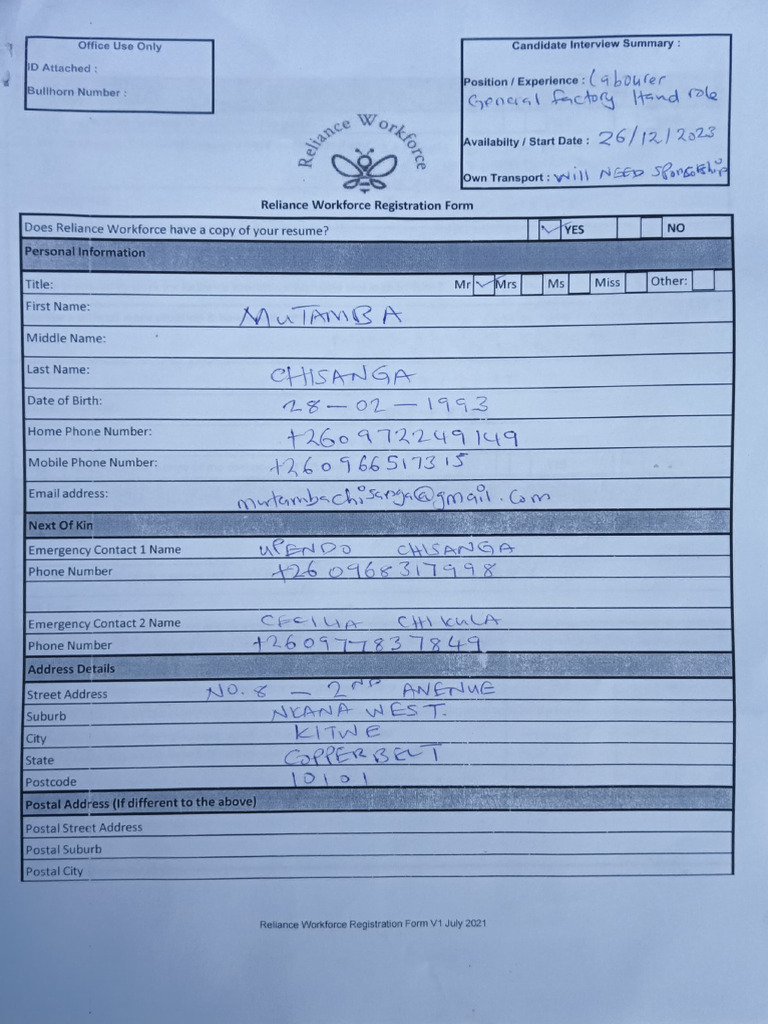 Office Use Only
ID Attached :
Bullhorn Number :
Candidate Interview Summary :
Position / Experience : Labourer
General factory Hand role
Availabilty / Start Date : 26/12/2023
Own Transport : Will NEED Sponsorship
Reliance Workforce
Reliance Workforce Registration Form
Does Reliance Workforce have a copy of your resume? YES NO
Personal Information
Title: Mr Mrs Ms Miss Other:
First Name: MUTAMBA
Middle Name:
Last Name: CHISANGA
Date of Birth: 28-02-1993
Home Phone Number: +260972249149
Mobile Phone Number: +260966517315
Email address: mutambachisanga@gmail.com
Next Of Kin
Emergency Contact 1 Name UPENDO CHISANGA
Phone Number +260968317998
Emergency Contact 2 Name CECILIA CHIKULA
Phone Number +260977837849
Address Details
Street Address NO. 8 - 2ND AVENUE
Suburb NKANA WEST.
City KITWE
State COPPERBELT
Postcode 10101
Postal Address (If different to the above)
Postal Street Address
Postal Suburb
Postal City
Reliance Workforce Registration Form V1 July 2021